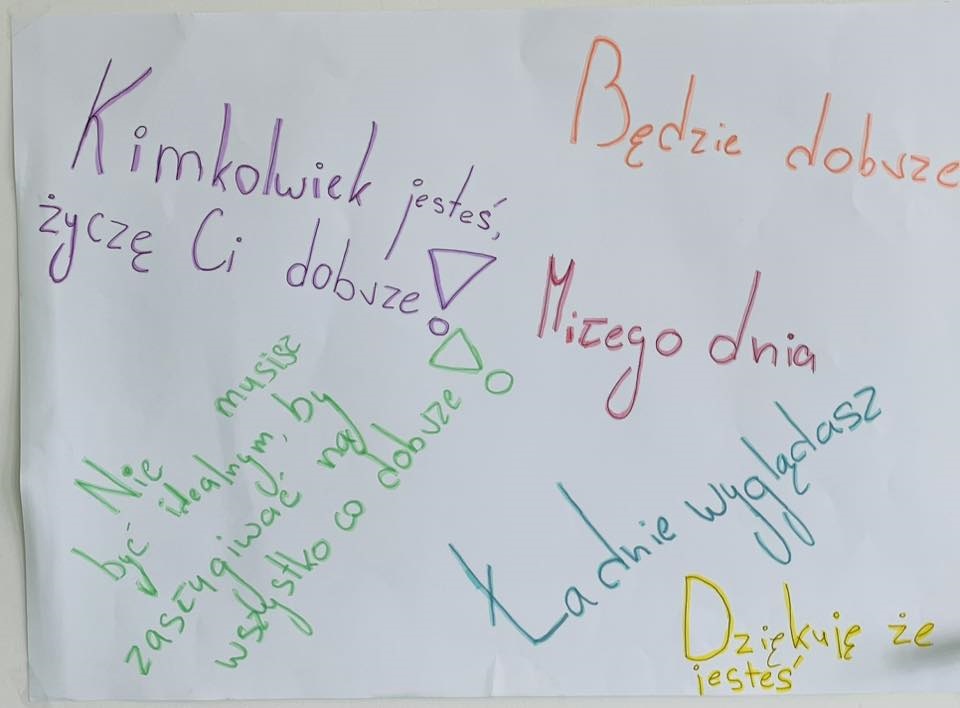 Kimkolwiek jesteś,
życzę Ci dobrze!
Będzie dobrze
Miłego dnia
Nie musisz
być idealnym, by
zasługiwać na
wszystko co dobrze!
Ładnie wyglądasz
Dziękuję że
jesteś